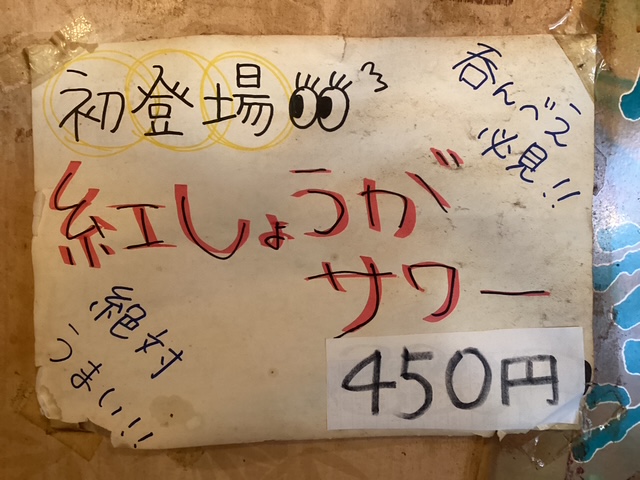 初登場
呑んべえ
必見!!
紅しょうが
サワー
絶対
うまい!!!
450円